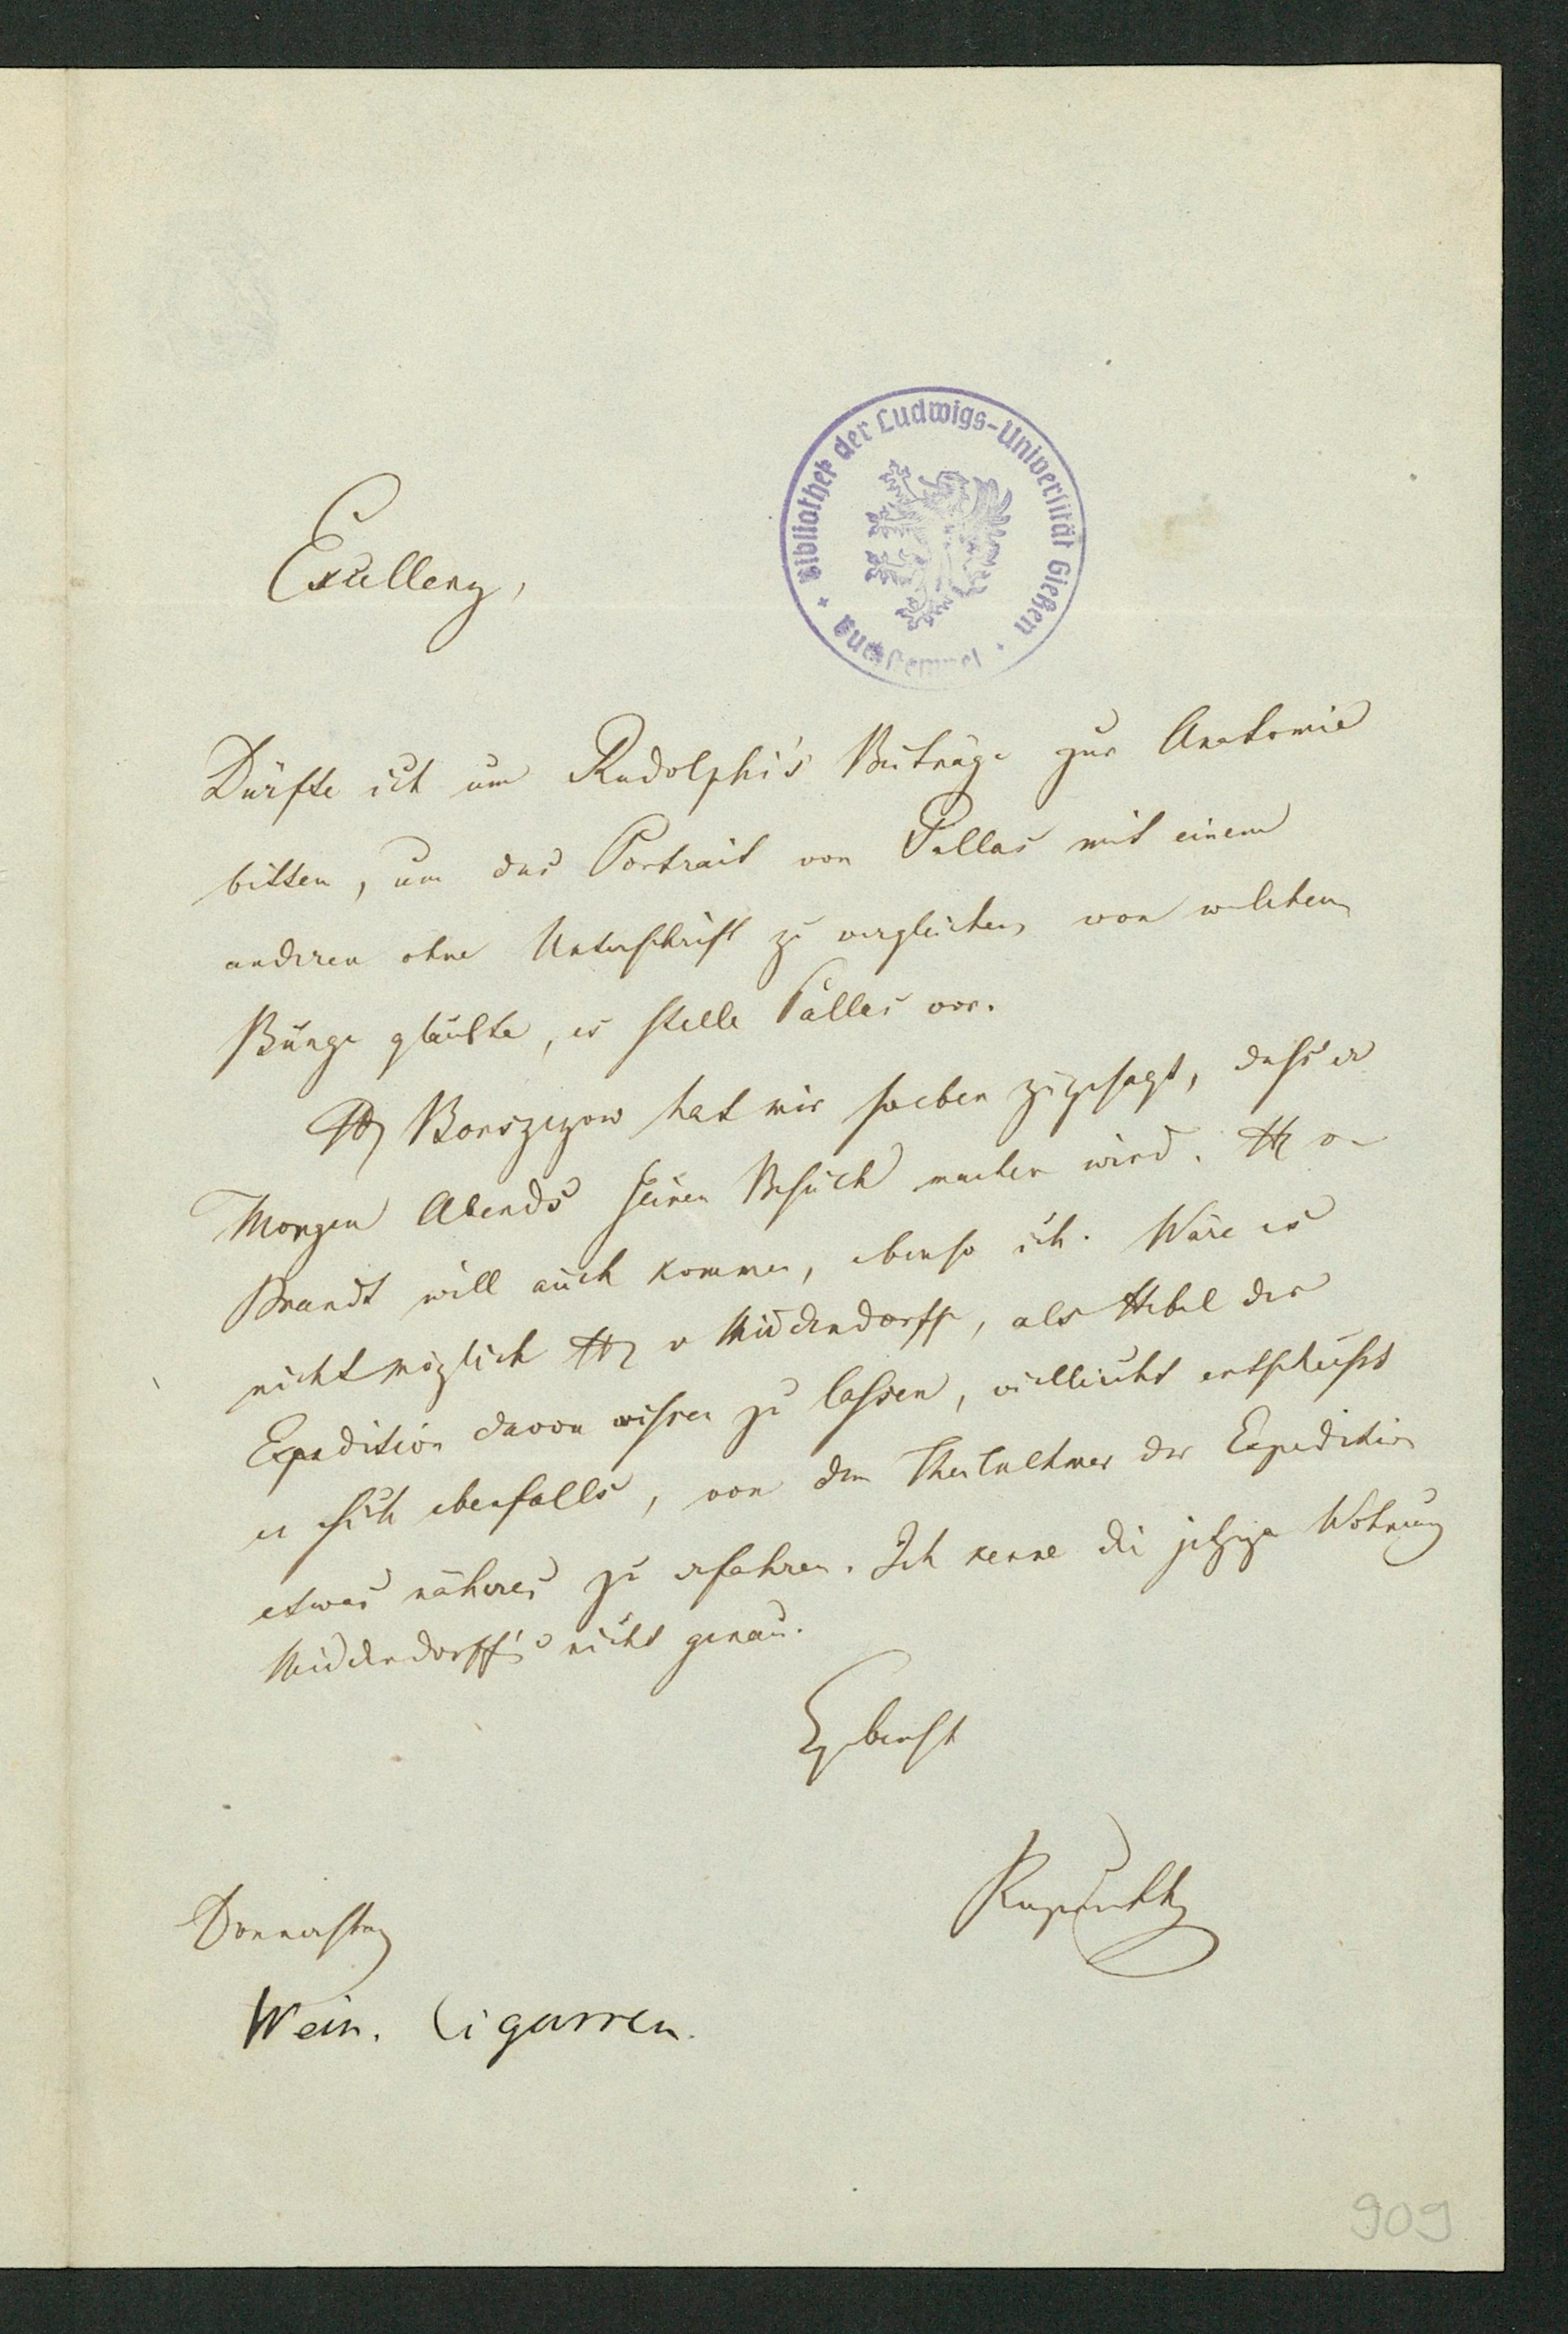 Bibliothek der Ludwigs-Universität Gießen
Excellenz,
Dürfte ich um Rudolphi's Beiträge zur Anatomie
bitten, um das Portrait von Pallas mit einem
anderen ohne Unterschrift zu vergleichen, von welchem
Bunge glaubte, es stelle Pallas vor.
H Borszczow hat mir soeben zugesagt, dass er
Morgen Abends seinen Besuch machen wird. H v
Brandt will auch kommen, ebenso ich. Wäre es
nicht möglich H v Middendorff, als Hebel der
Expedition davon wissen zu lassen, vielleicht entschliesst
er sich ebenfalls, von dem Theilnehmer der Expedition
etwas näheres zu erfahren. Ich kenne die jetzige Wohnung
Middendorff's nicht genau.
Ergebenst
Ruprecht
Donnerstag
Wein. Cigarren.
909